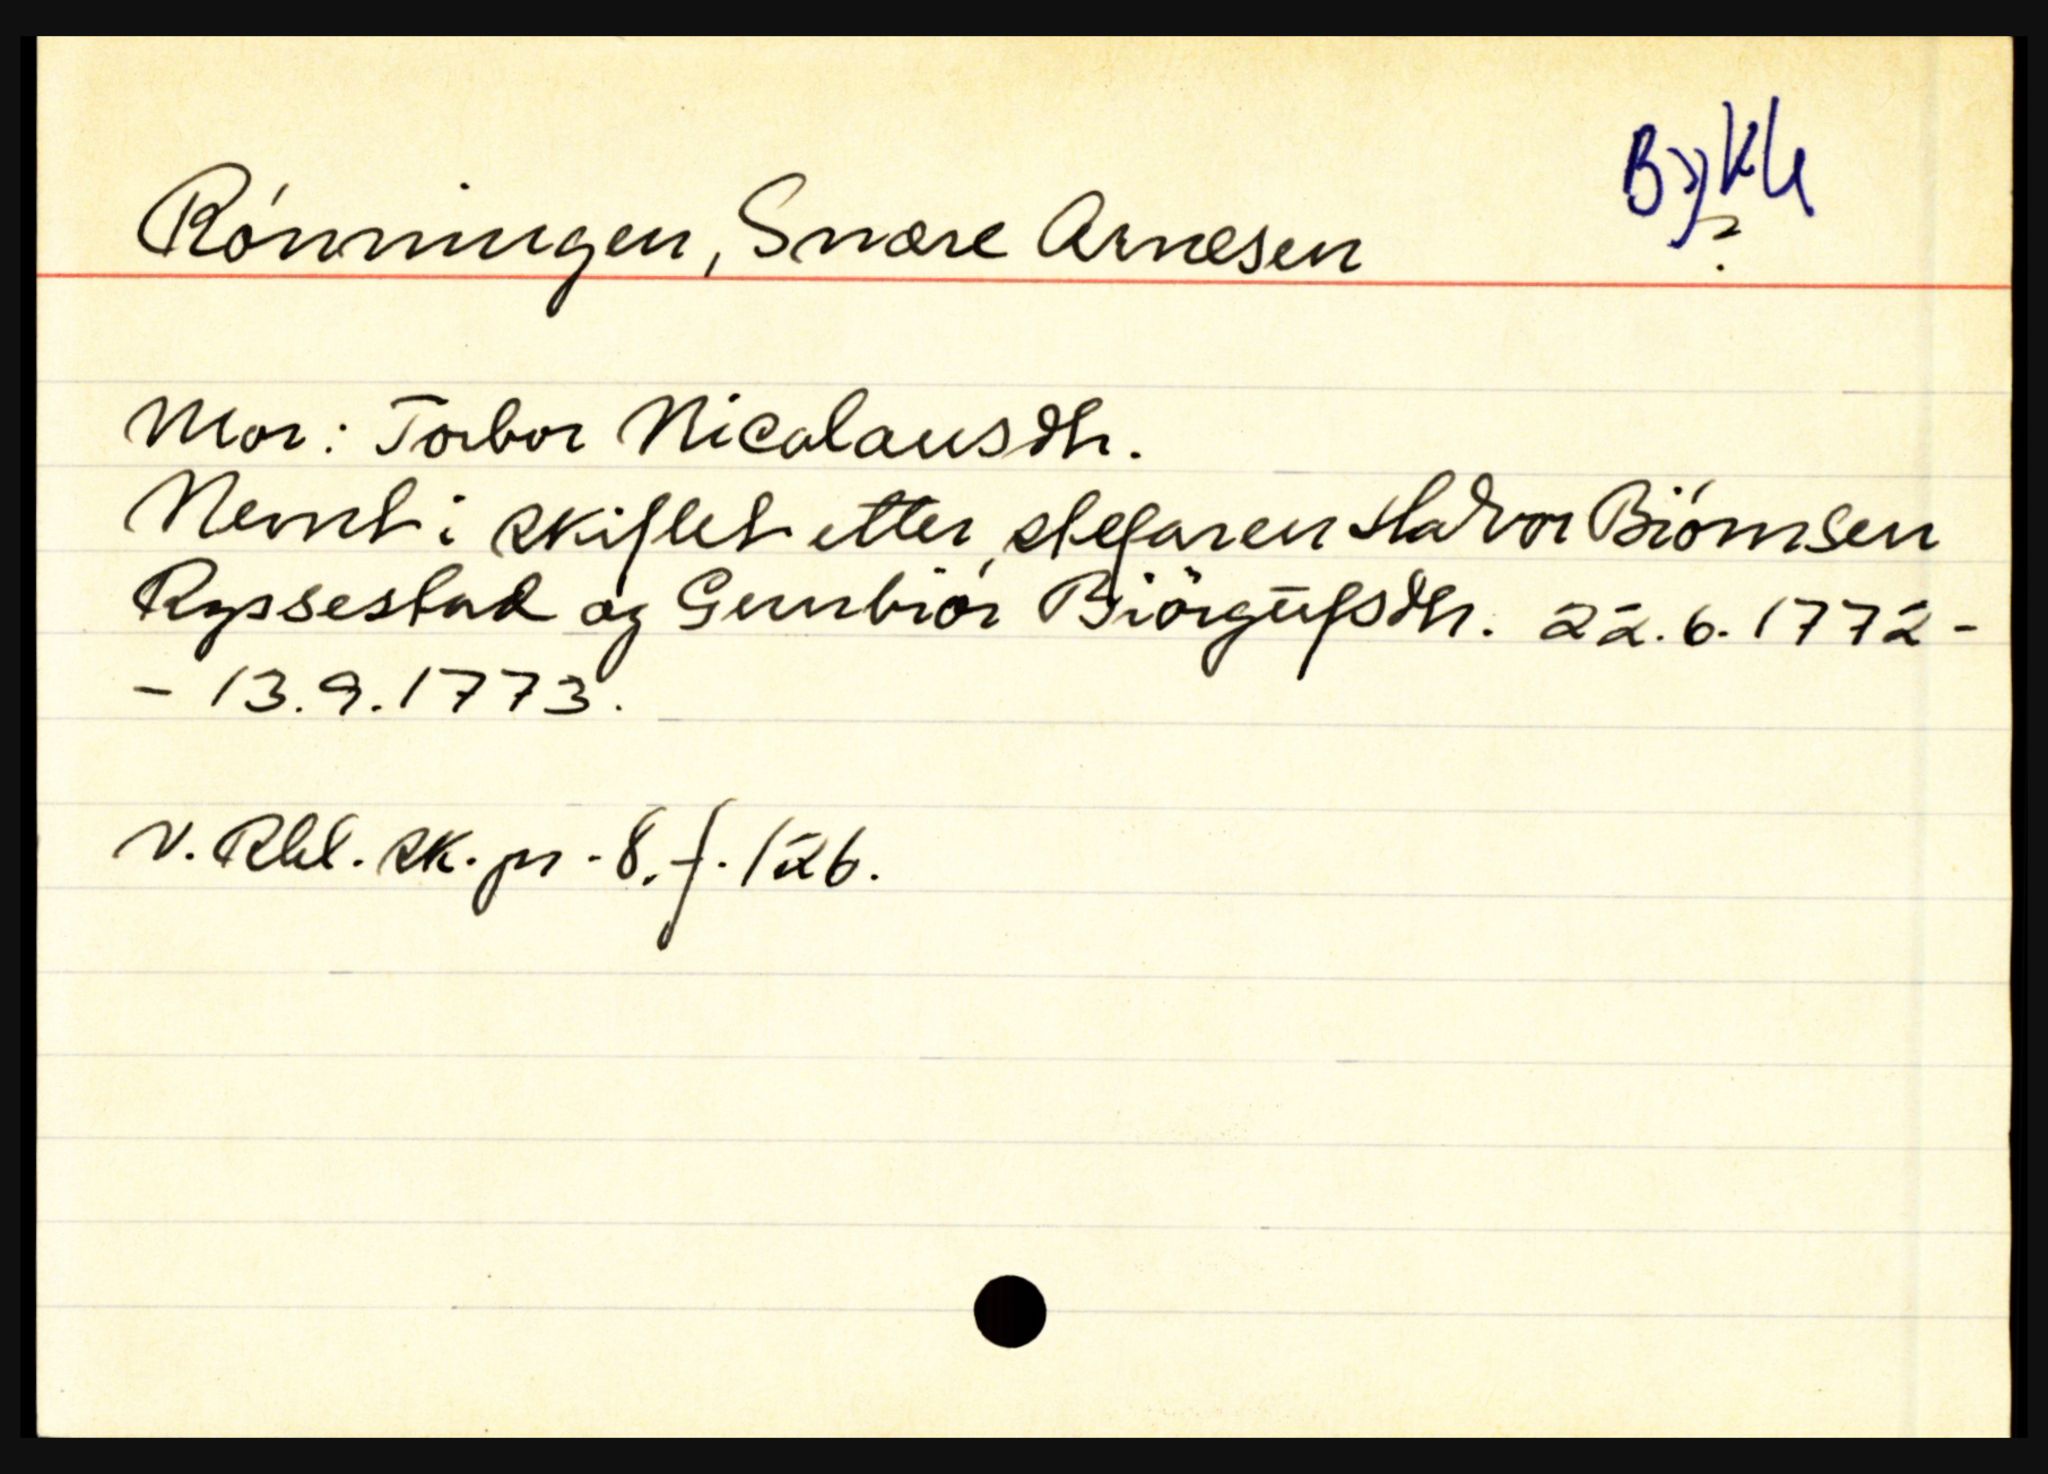 Bykle
?
Rónningen, Snære Arnesen
Mor: Torbor Nicolausdtr.
Nevnt i skiftet etter stefaren Halvor Biórnsen
Ryssestad og Gunbiór Biörgufsdtr. 22.6.1772 -
- 13.9.1773.
V. Rbl. sk. pr. 8. f. 126.